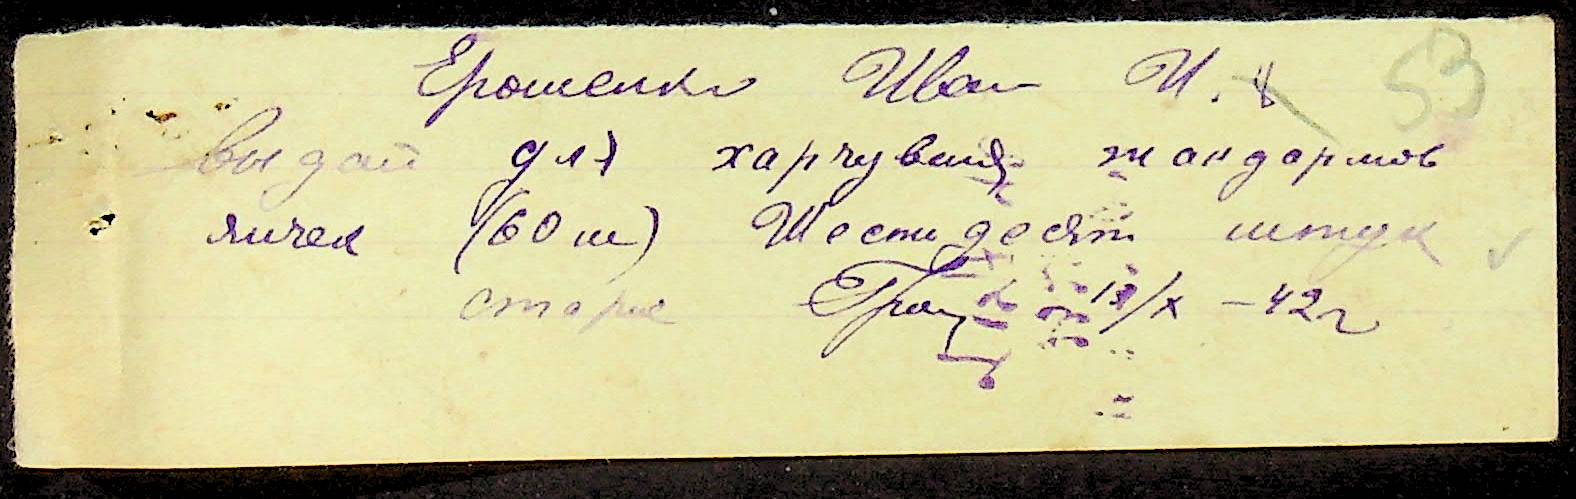 Ерошенко Иван И.
53
выдай для харчувния жандармов
яичек (60 ш) Шестьдесят штук
старс 13/X -42 г